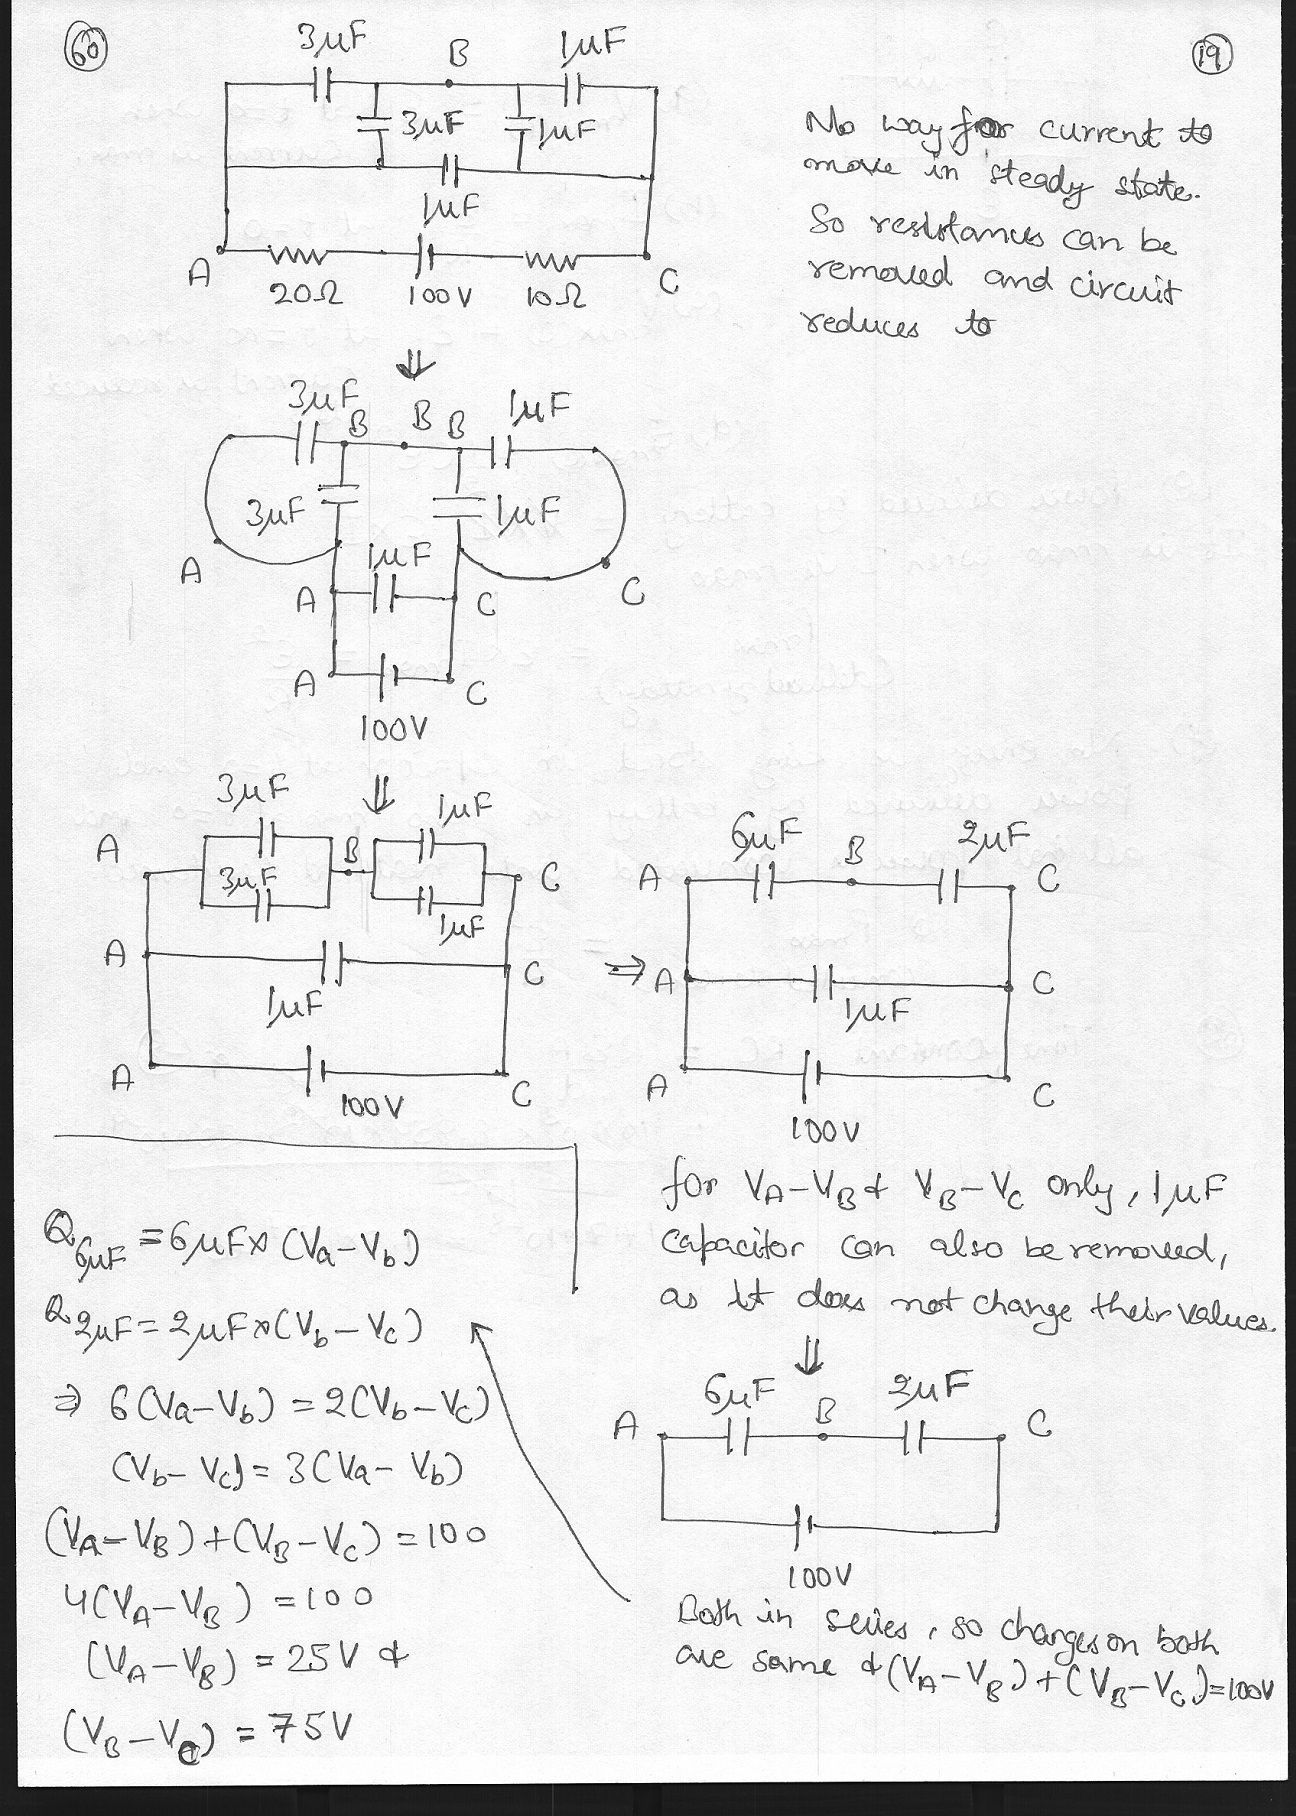 60
19
3μF
B
1μF
3μF
1μF
1μF
A
20Ω
100V
10Ω
C
No way for current to
move in steady state.
So resistances can be
removed and circuit
reduces to
⇓
3μF
B
B
B
1μF
3μF
1μF
1μF
A
C
A
C
A
C
100V
⇓
3μF
1μF
A
B
C
3μF
1μF
A
C
1μF
A
C
100V
⇒
6μF
B
2μF
A
C
A
C
1μF
A
C
100V
for VA-VB & VB-VC only, 1μF
capacitor can also be removed,
as it does not change their values.
⇓
6μF
B
2μF
A
C
100V
Both in series, so charges on both
are same & (VA-VB)+(VB-VC)=100V
Q6μF = 6μF×(Va-Vb)
Q2μF = 2μF×(Vb-Vc)
⇒ 6(Va-Vb) = 2(Vb-Vc)
(Vb-Vc) = 3(Va-Vb)
(VA-VB)+(VB-VC) = 100
4(VA-VB) = 100
(VA-VB) = 25V &
(VB-VC) = 75V